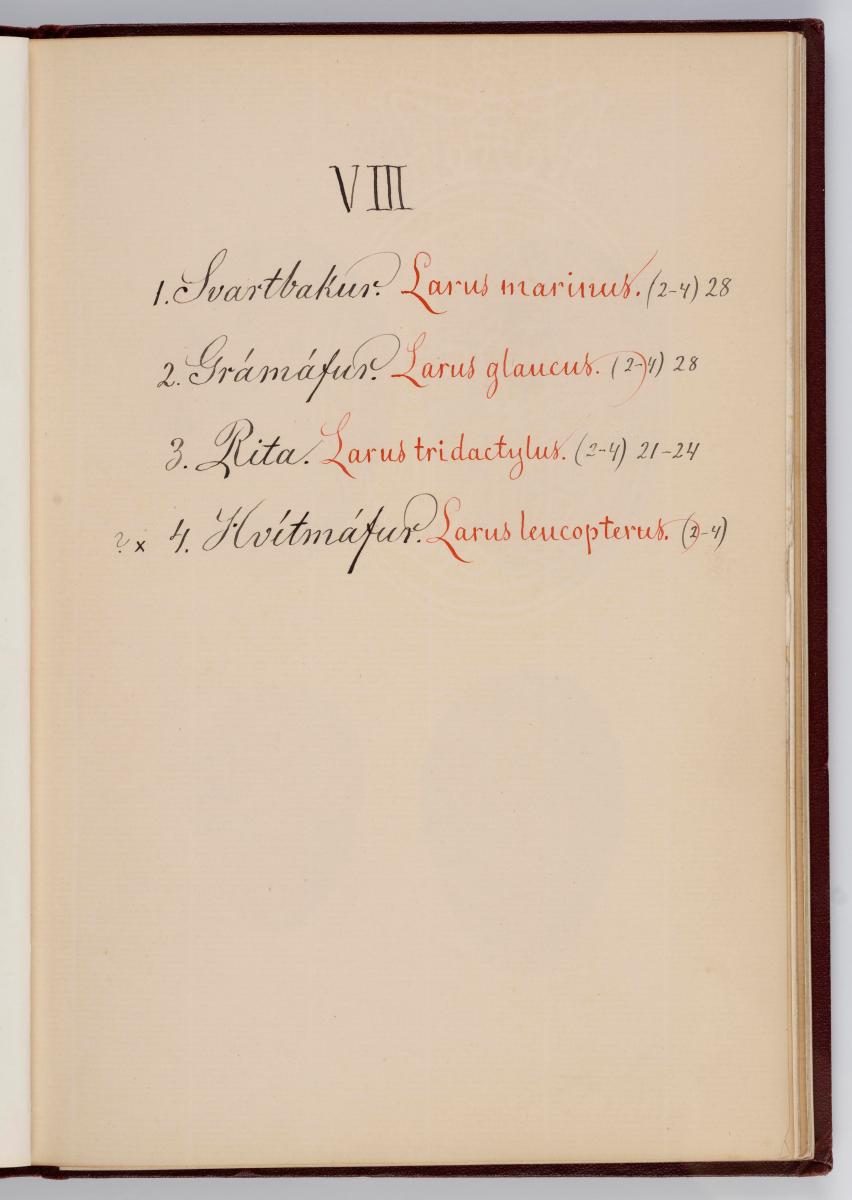 VIII
1. Svartbakur. Larus marinus. (2-4) 28
2. Grámáfur. Larus glaucus. (2-4) 28
3. Rita. Larus tridactylus. (2-4) 21-24
? x 4. Hvítmáfur. Larus leucopterus. (2-4)